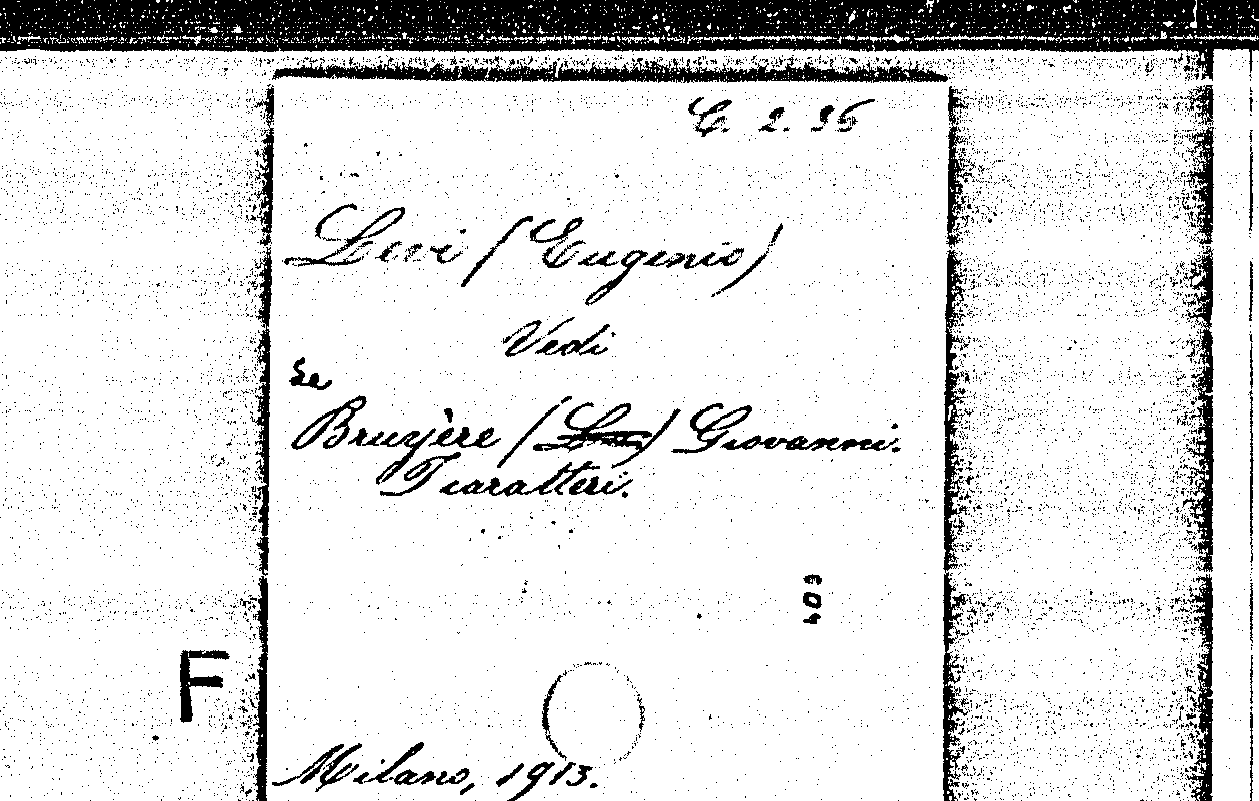 C. 2. 36
Levi (Eugenio)
Vedi
La
Bruyère (La) Giovanni.
I caratteri.
409
F
Milano, 1913.